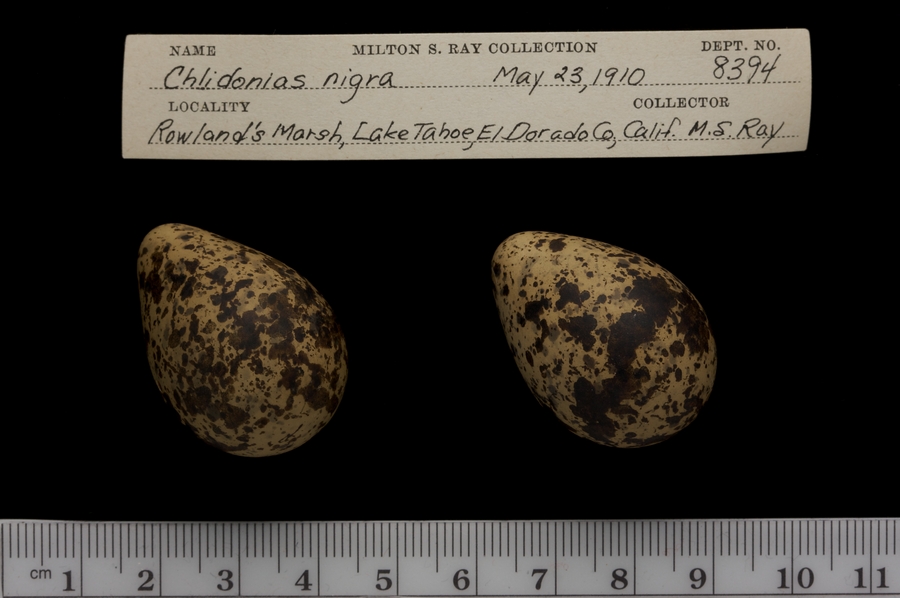 NAME MILTON S. RAY COLLECTION DEPT. NO.
Chlidonias nigra May 23, 1910 8394
LOCALITY COLLECTOR
Rowland's Marsh, Lake Tahoe, El Dorado Co, Calif. M.S. Ray
cm 1 2 3 4 5 6 7 8 9 10 11